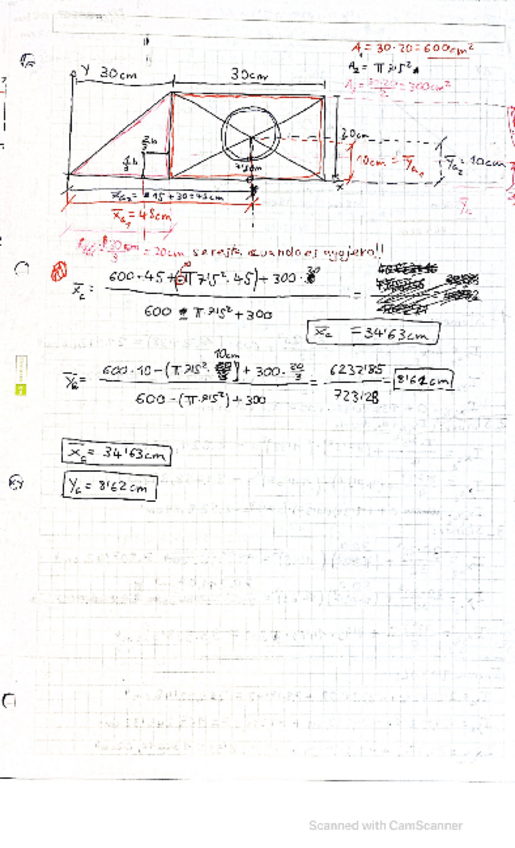 A₁ = 30·20 = 600cm²
A₂ = π 7'5²
A₃ = 30·20/2 = 300cm²
Y 30cm 30cm
20cm
10cm = ȲG₁
ȲG₂ = 10cm
x
x̄G₂ = 15 + 30 = 45cm
x̄G₁ = 45cm
= 20cm se resta cuando es agujero!!
x̄G = 600·45 + (-π 7'5²·45) + 300·20 / 600 - π 7'5² + 300 =
x̄G = 34'63cm
ȲG = 600·10 - (π 7'5²· 10cm) + 300· 20/3 / 600 - (π·7'5²) + 300 = 6232'85 / 723'28 = 8'62cm
x̄G = 34'63cm
YG = 8'62cm
Scanned with CamScanner